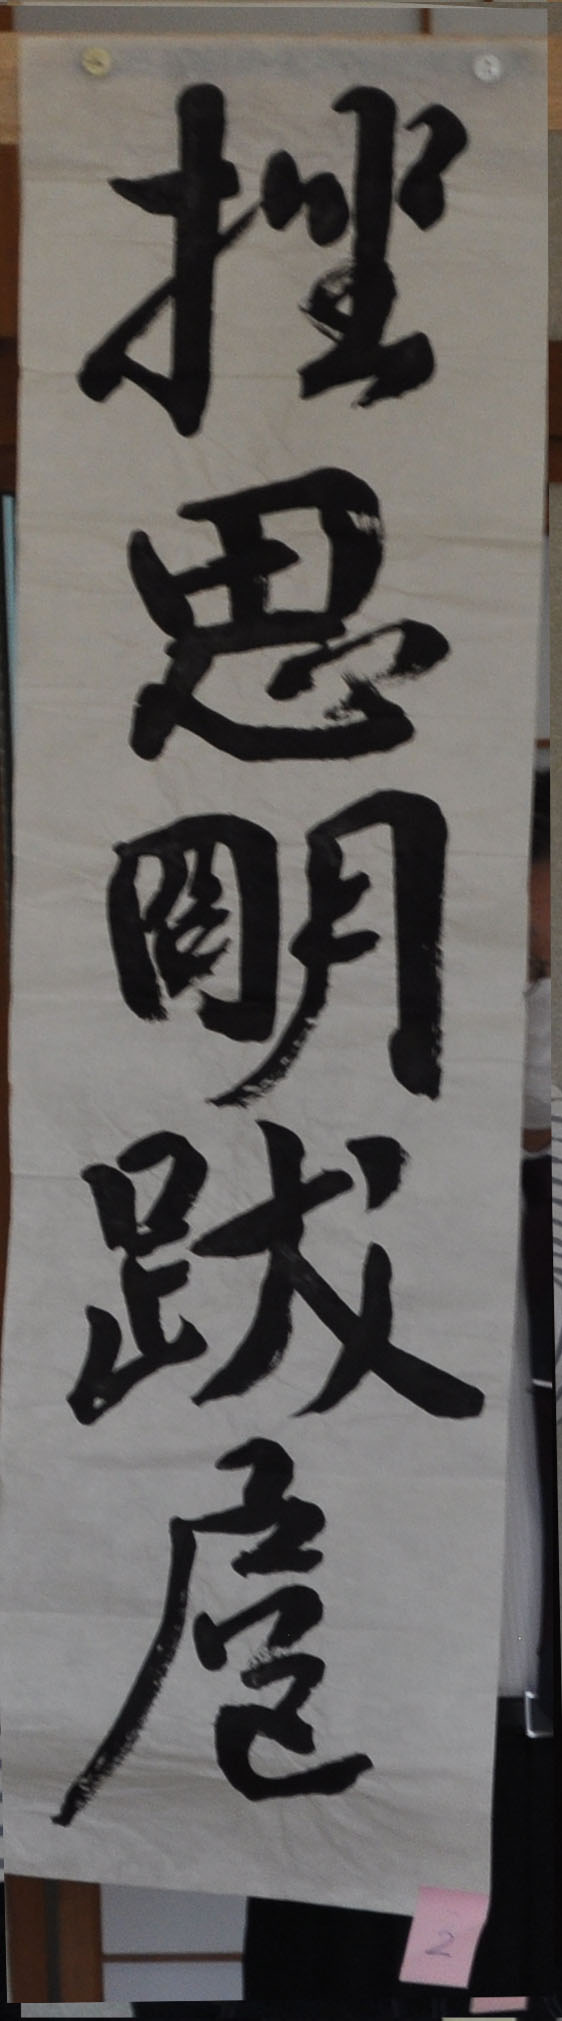 挫思明跋扈
2